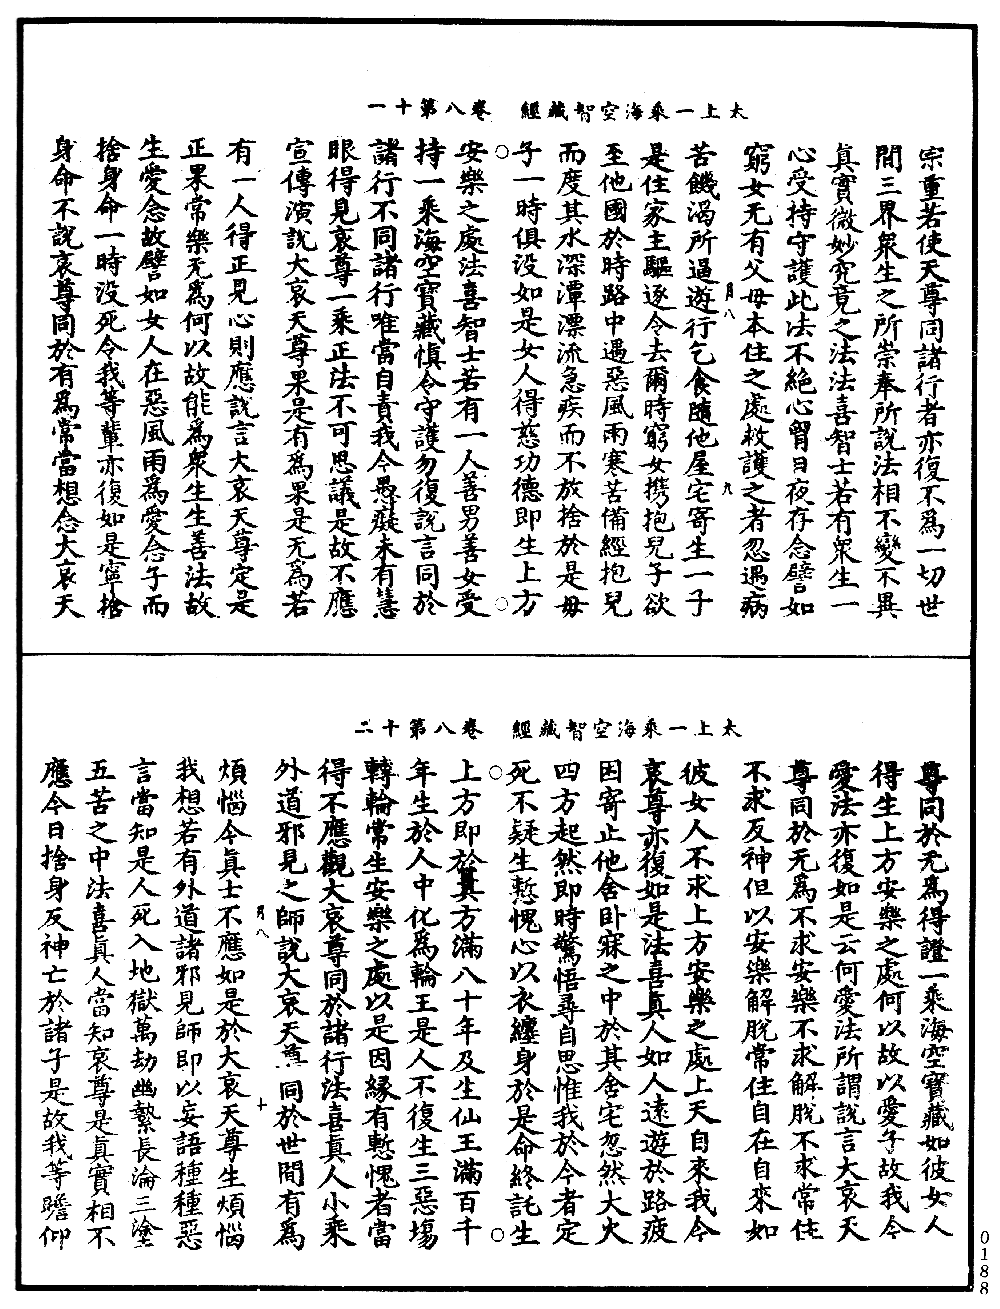 太上一乘海空智藏經　卷八第十一
宗重若使天尊同諸行者亦復不爲一切世
間三界衆生之所崇奉所說法相不變不異
真實微妙究竟之法法喜智士若有衆生一
心受持守護此法不絕心胷日夜存念譬如
窮女无有父母本住之處救護之者忽遇病
月八　九
苦饑渴所逼遊行乞食隨他屋宅寄生一子
是住家主驅逐令去爾時窮女携抱兒子欲
至他國於時路中遇惡風雨寒苦備經抱兒
而度其水深潭漂流急疾而不放捨於是母
子一時俱没如是女人得慈功德即生上方
安樂之處法喜智士若有一人善男善女受
持一乘海空寶藏愼令守護勿復說言同於
諸行不同諸行唯當自責我今愚癡未有慧
眼得見哀尊一乘正法不可思議是故不應
宣傳演說大哀天尊果是有爲果是无爲若
有一人得正見心則應說言大哀天尊定是
正果常樂无爲何以故能爲衆生生善法故
生愛念故譬如女人在惡風雨爲愛念子而
捨身命一時没死令我等輩亦復如是寧捨
身命不說哀尊同於有爲常當想念大哀天
太上一乘海空智藏經　卷八第十二
尊同於无爲得證一乘海空寶藏如彼女人
得生上方安樂之處何以故以愛子故我今
愛法亦復如是云何愛法所謂說言大哀天
尊同於无爲不求安樂不求解脫不求常住
不求反神但以安樂解脫常住自在自來如
彼女人不求上方安樂之處上天自來我今
哀尊亦復如是法喜真人如人遠遊於路疲
因寄止他舍卧寐之中於其舍宅忽然大火
四方起然即時驚悟尋自思惟我於今者定
死不疑生慙愧心以衣纏身於是命終託生
上方即於其方滿八十年及生仙王滿百千
年生於人中化爲輪王是人不復生三惡塲
轉輪常生安樂之處以是因緣有慙愧者當
得不應觀大哀尊同於諸行法喜真人小乘
外道邪見之師說大哀天尊同於世間有爲
月八　十
煩惱今真士不應如是於大哀天尊生煩惱
我想若有外道諸邪見師即以妄語種種惡
言當知是人死入地獄萬劫幽繫長淪三塗
五苦之中法喜真人當知哀尊是真實相不
應今日捨身反神亡於諸子是故我等瞻仰
0188